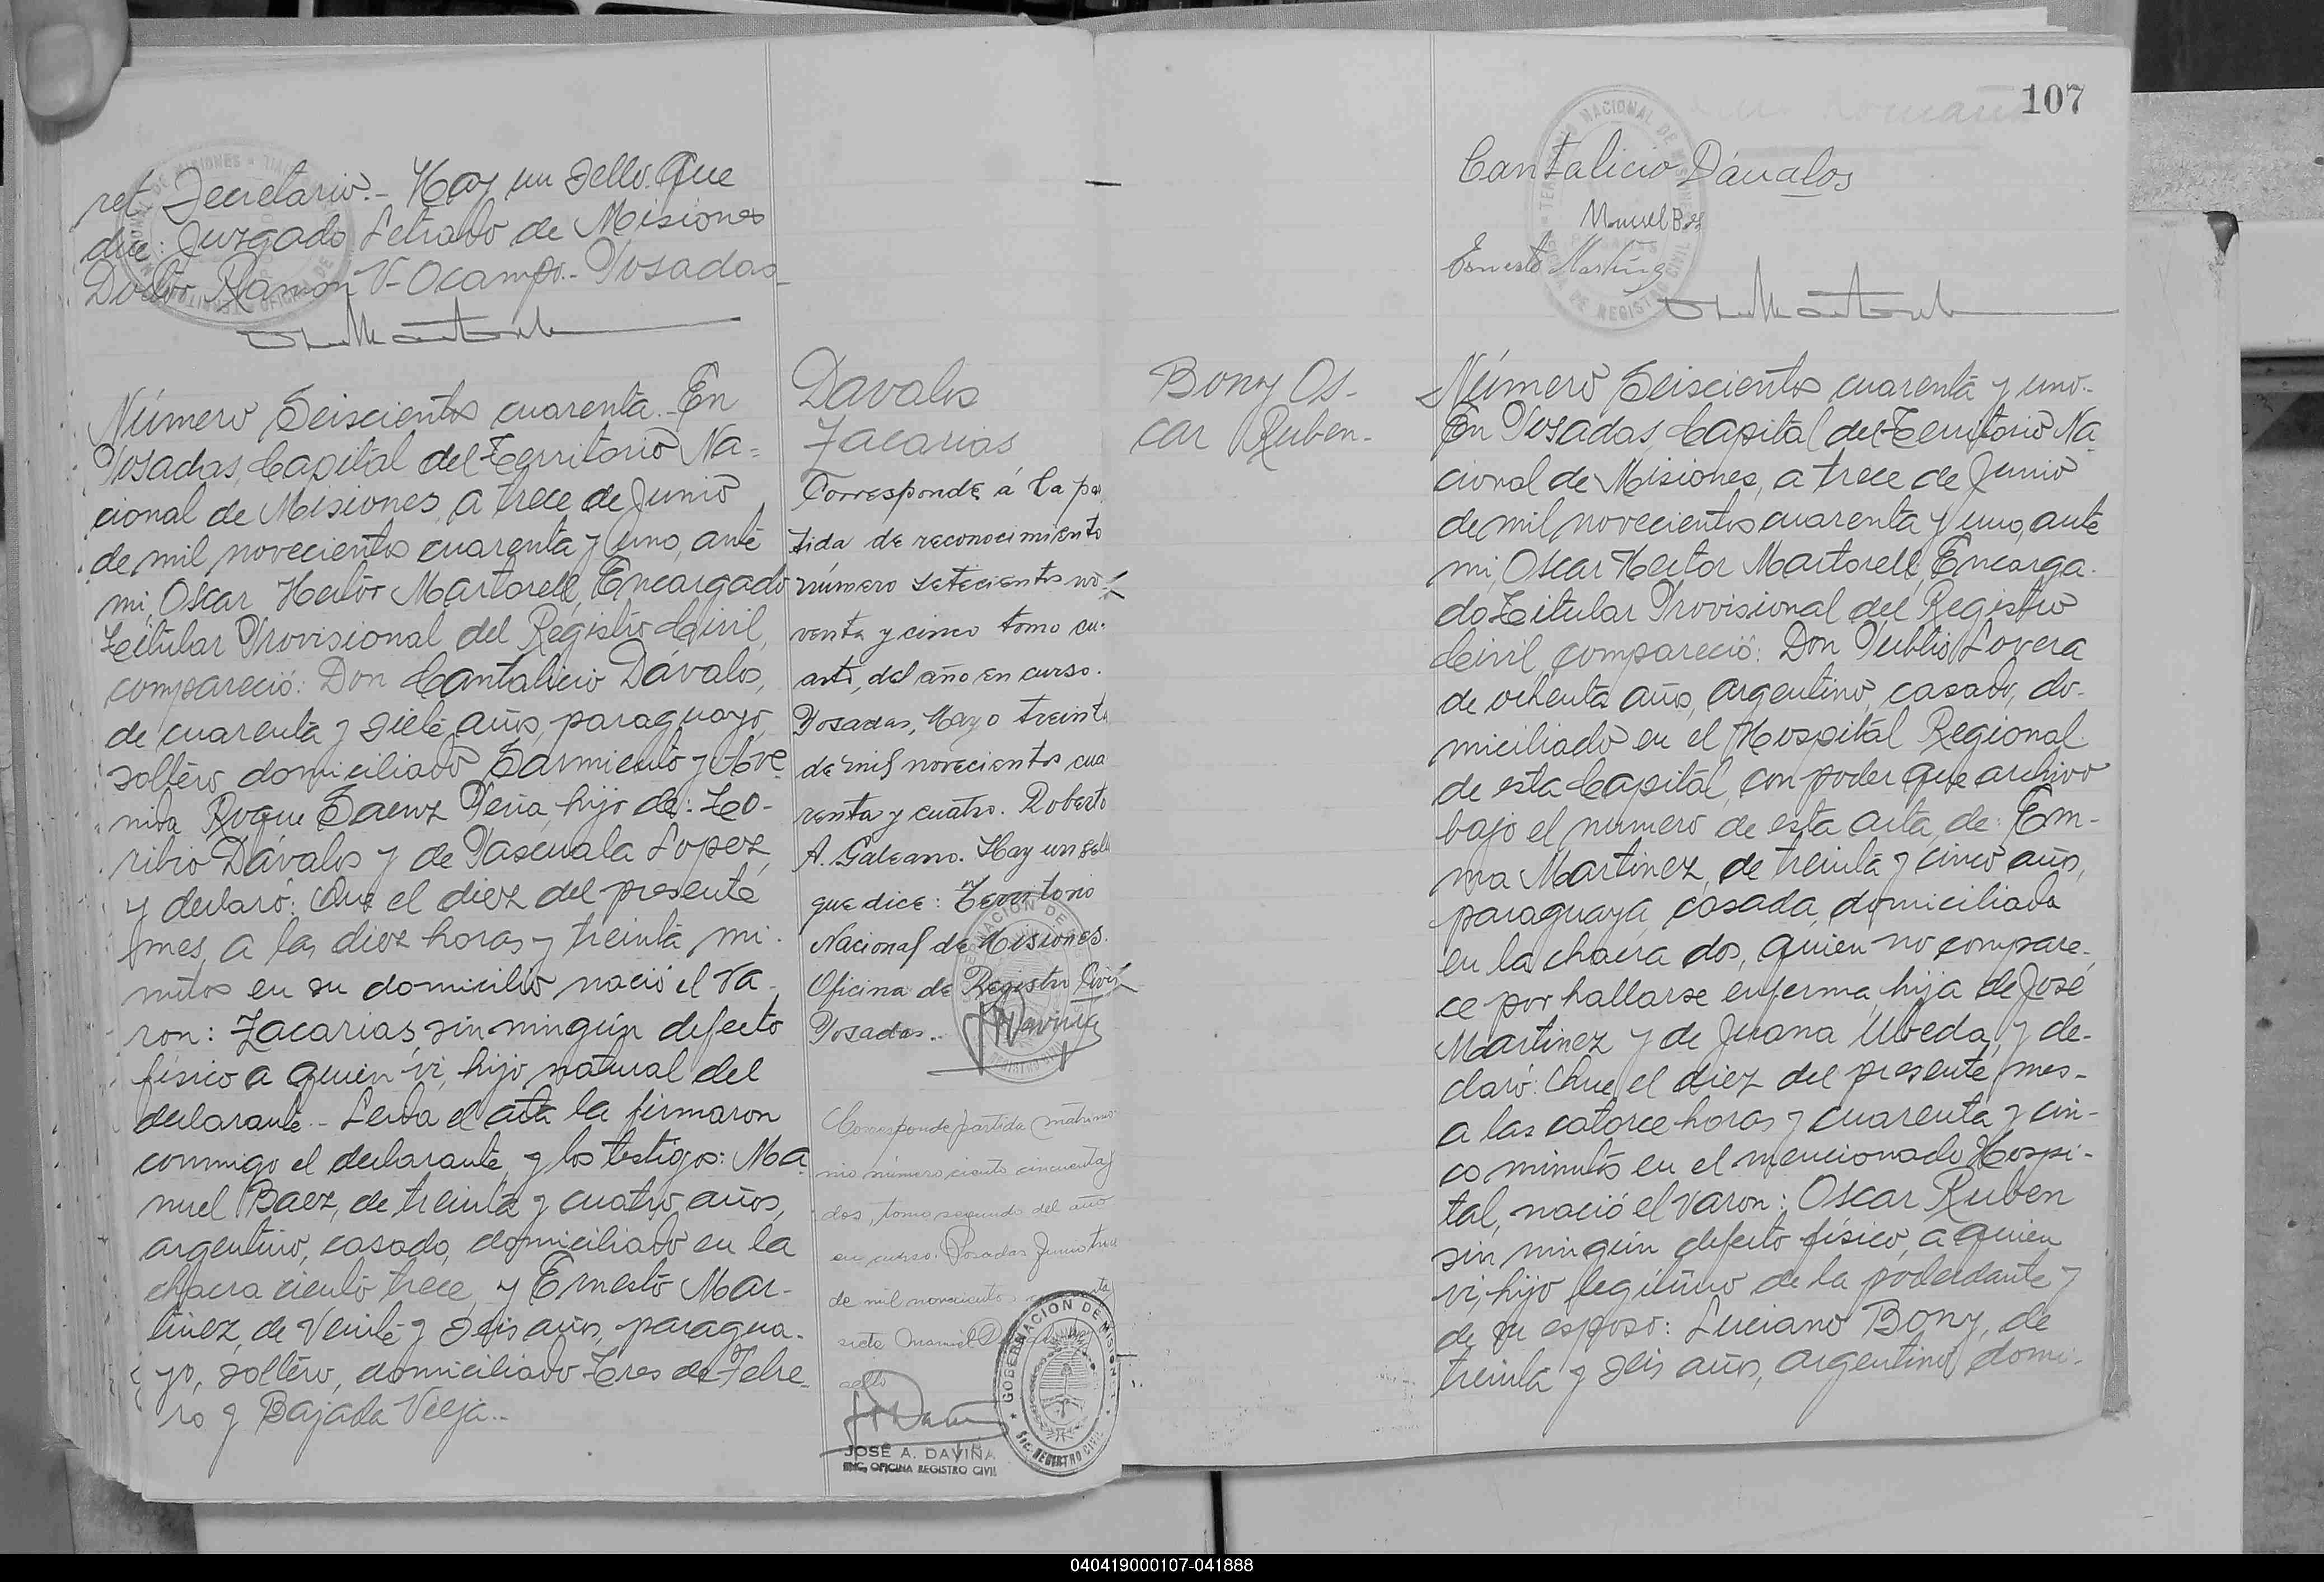 ret Secretario.- Hay un sello que
dice: Juzgado Letrado de Misiones
Doctor Ramon V. Ocampo.- Posadas-
Número Seiscientos cuarenta.- En
Posadas, Capital del Territorio Na=
cional de Misiones, a trece de Junio
de mil novecientos cuarenta y uno, ante
mi, Oscar Hector Martorell, Encargado
Titular Provisional del Registro Civil,
compareció: Don Cantalicio Dávalos,
de cuarenta y siete años, paraguayo,
soltero domiciliado Sarmiento y Ave
nida Roque Saenz Peña, hijo de: To-
ribio Dávalos y de Pascuala Lopez,
y declaró: Que el diez del presente
mes, a las diez horas y treinta mi-
nutos en su domicilio nació el va-
ron: Zacarias, sin ningún defecto
físico a quien vi, hijo natural del
declarante.- Leida el acta la firmaron
conmigo el declarante y los testigos: Ma
nuel Baez, de treinta y cuatro años,
argentino, casado, domiciliado en la
chacra ciento trece, y Ernesto Mar-
tinez, de veinte y seis años, paragua-
yo, soltero, domiciliado Tres de Febre-
ro y Bajada Vieja.-
Davalos
Zacarias
Corresponde á la par
tida de reconocimiento
número setecientos no-
venta y cinco tomo cu-
arto, del año en curso.
Posadas, Mayo treinta
de mil novecientos cua
renta y cuatro. Roberto
A. Galeano. Hay un sello
que dice: Territorio
Nacional de Misiones.
Oficina de Registro Civil
Posadas..
Corresponde partida matrimo-
nio número ciento cincuenta y
dos, tomo segundo del año
en curso. Posadas Junio
de mil novecientos
siete Manuel
sello
JOSÉ A. DAVIÑA
ENC. OFICINA REGISTRO CIVIL
GOBERNACION DE MISIONES
REGISTRO CIVIL
107
Cantalicio Dávalos
Manuel Baez
Ernesto Martinez
Bony Os-
car Ruben-
Número Seiscientos cuarenta y uno.-
En Posadas, Capital del Territorio Na
cional de Misiones, a trece de Junio
de mil novecientos cuarenta y uno, ante
mi, Oscar Hector Martorell, Encarga-
do Titular Provisional del Registro
Civil, compareció: Don Publio Lovera
de ochenta años, argentino, casado, do-
miciliado en el Hospital Regional
de esta Capital, con poder que archivo
bajo el numero de esta acta, de: Em-
ma Martinez, de treinta y cinco años,
paraguaya, casada, domiciliada
en la chacra dos, quien no compare-
ce por hallarse enferma, hija de José
Martinez y de Juana Ubeda, y de-
claró: Que el diez del presente mes-
a las catorce horas y cuarenta y cin-
co minutos en el mencionado Hospi-
tal, nació el varon: Oscar Ruben
sin ningún defecto físico, a quien
vi, hijo legítimo de la poderdante y
de su esposo: Luciano Bony, de
treinta y seis años, argentino, domi-
040419000107-041888